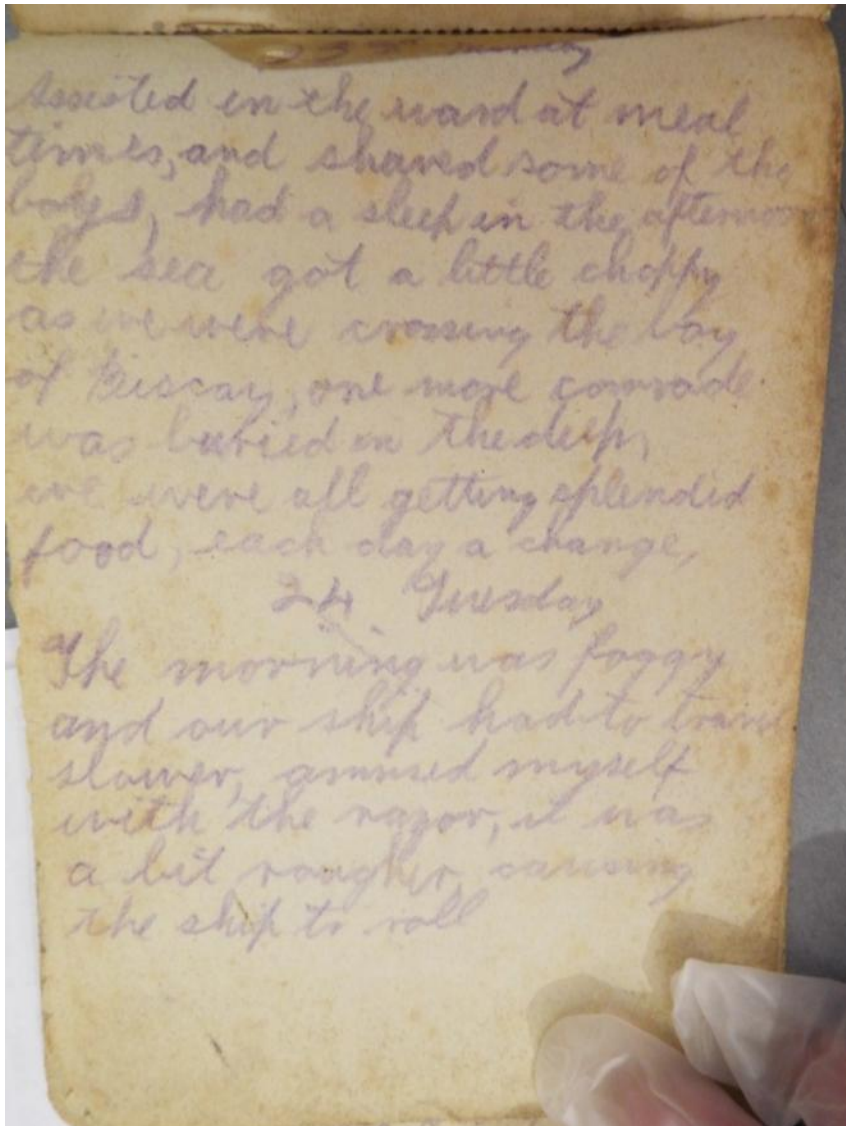 Monday
Assisted in the ward at meal
times, and shaved some of the
boys, had a sleep in the afternoon
the sea got a little choppy
as we were crossing the bay
of Biscay, one more comrade
was buried in the deep,
we were all getting splendid
food, each day a change,
24 Tuesday
The morning was foggy
and our ship had to travel
slower, amused myself
with the razor, it was
a bit rougher, causing
the ship to roll